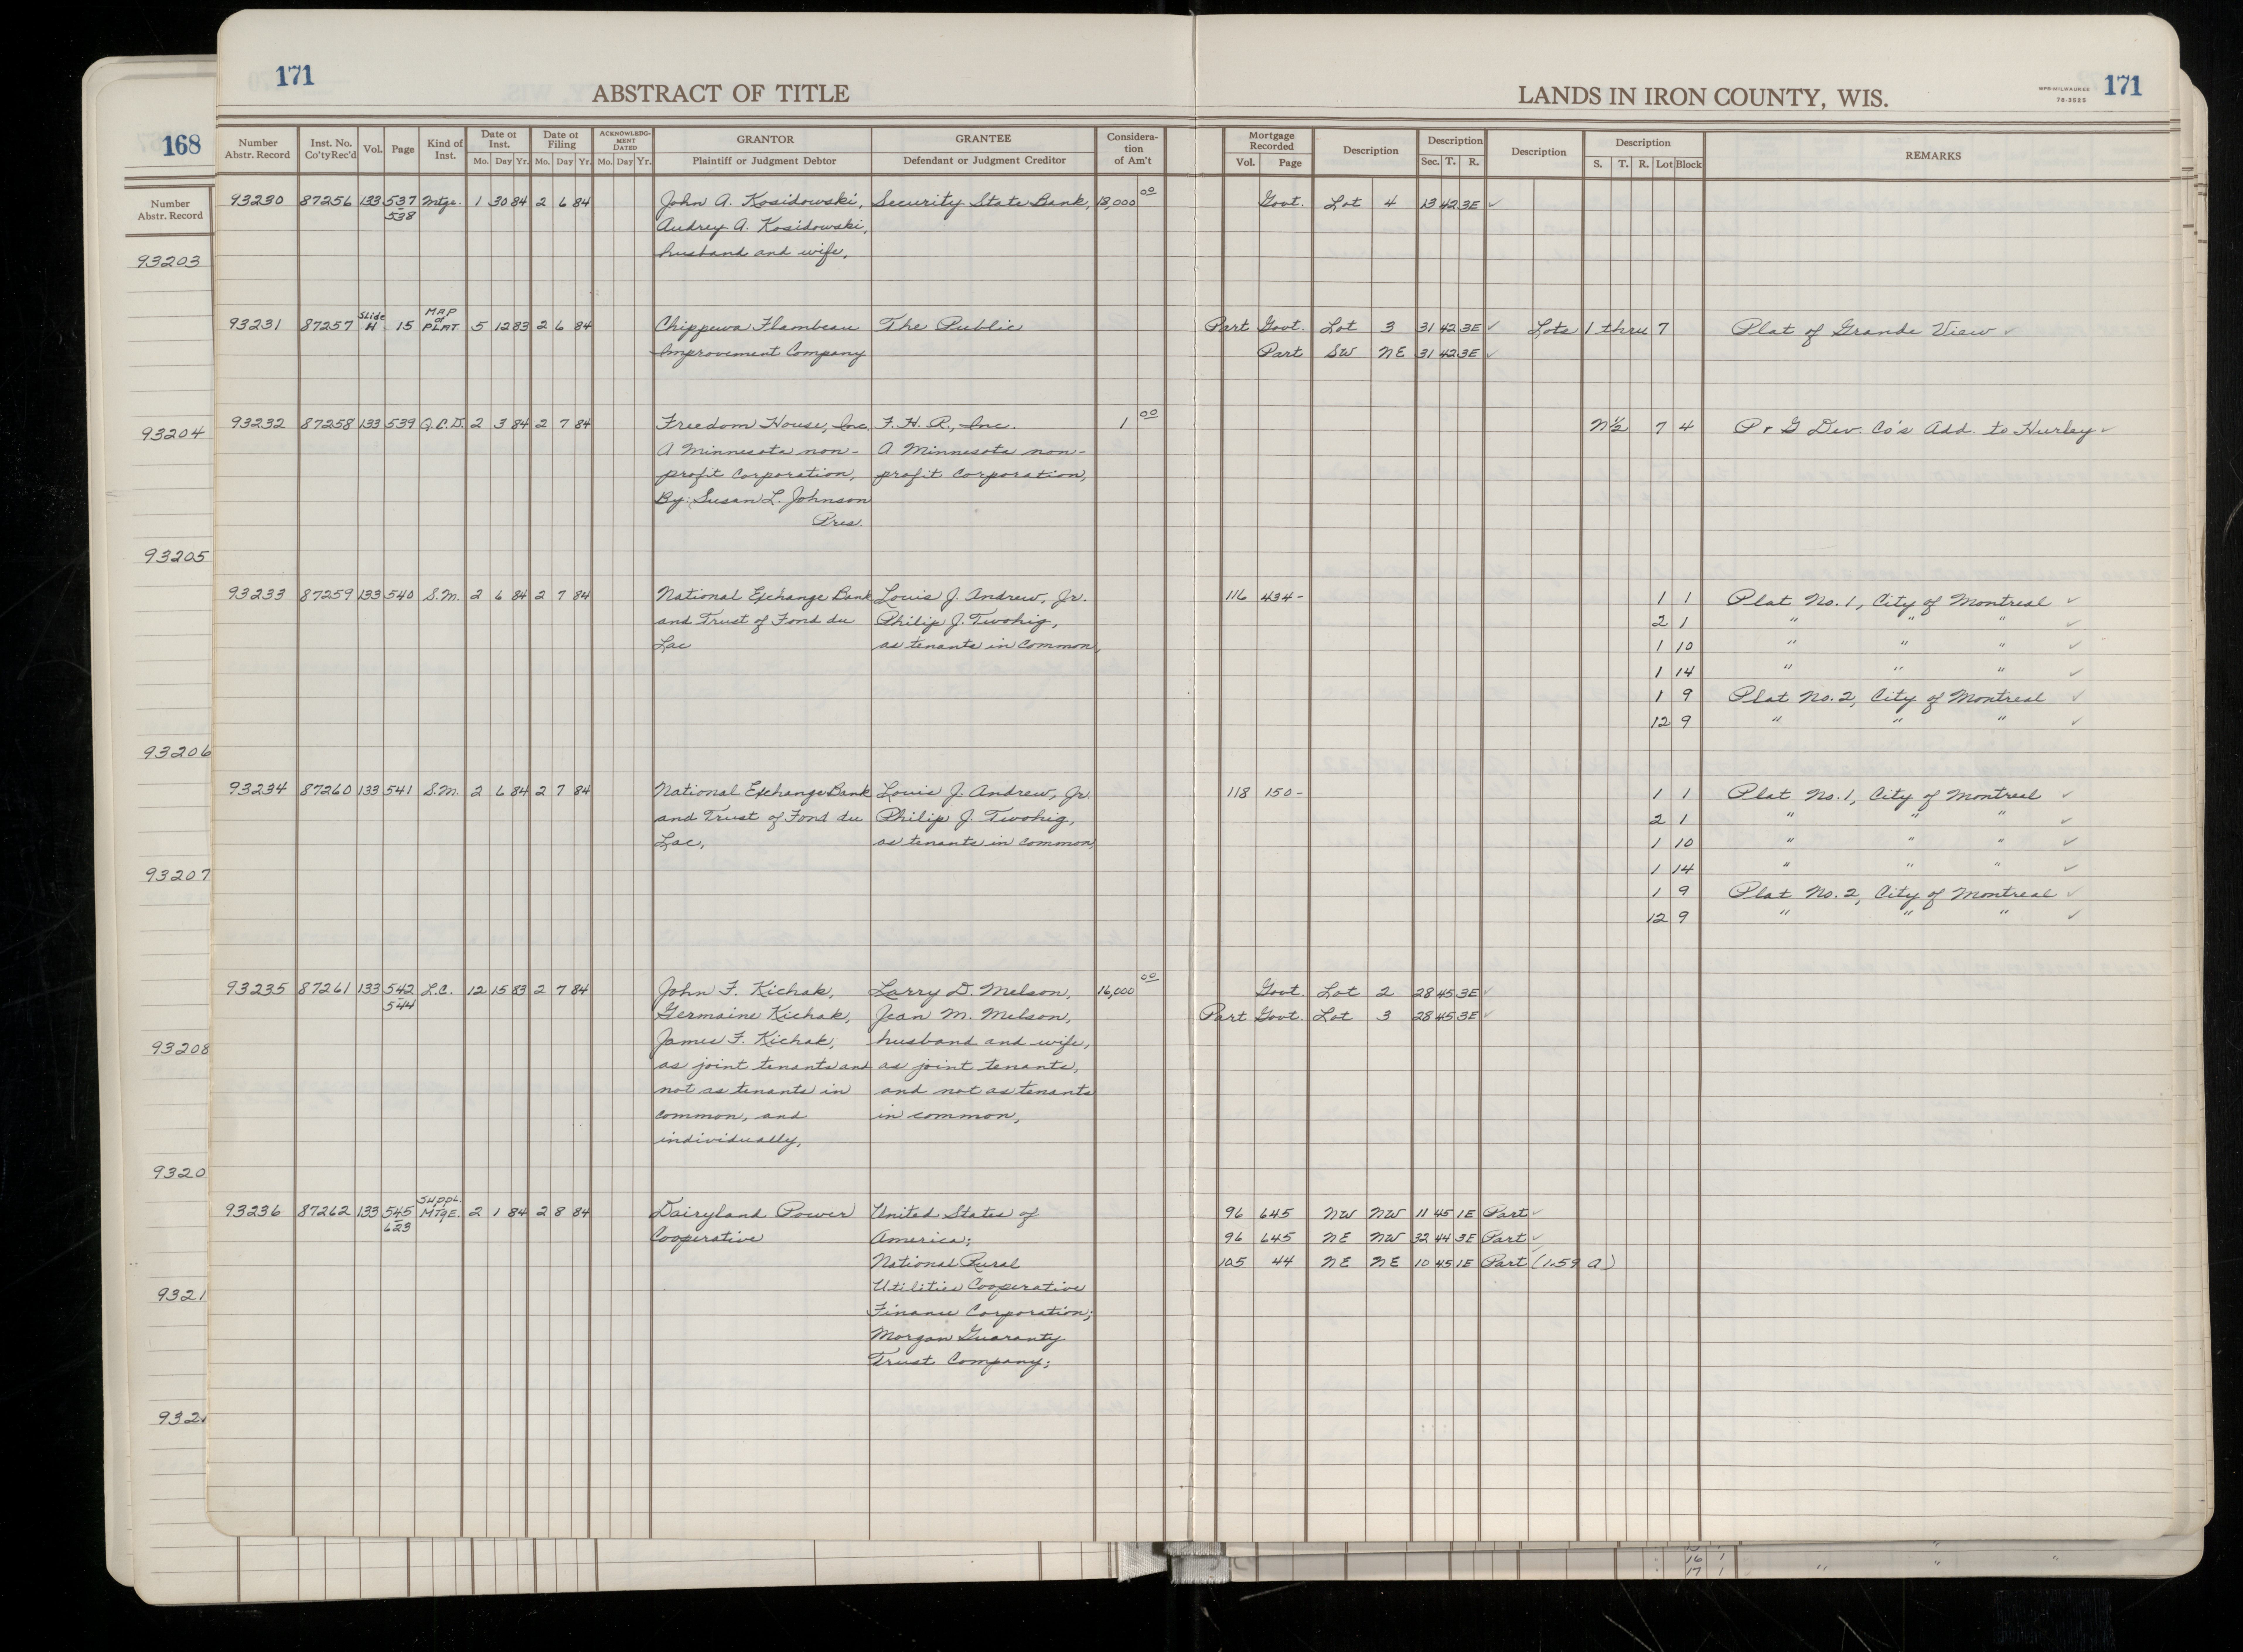 171
ABSTRACT OF TITLE
LANDS IN IRON COUNTY, WIS.
WPB-MILWAUKEE
78-3525
171
168
Number Abstr. Record
93203
93204
93205
93206
93207
93208
9320
9321
932
Number Abstr. Record Inst. No. Co'ty Rec'd Vol. Page Kind of Inst. Date of Inst. Mo. Day Yr. Date of Filing Mo. Day Yr. ACKNOWLEDGMENT DATED Mo. Day Yr. GRANTOR Plaintiff or Judgment Debtor GRANTEE Defendant or Judgment Creditor Consideration of Am't Mortgage Recorded Vol. Page Description Description Sec. T. R. Description Description S. T. R. Lot Block REMARKS
93230 87256 133 537 Mtge. 1 30 84 2 6 84 John A. Kosidowski, Security State Bank, 18,000 00 Govt. Lot 4 13 42 3E ✓
538 Audrey A. Kosidowski,
husband and wife,
93231 87257 Slide H 15 MAP of PLAT 5 12 83 2 6 84 Chippewa Flambeau The Public Part Govt. Lot 3 31 42 3E ✓ Lots 1 thru 7 Plat of Grande View ✓
Improvement Company Part SW NE 31 42 3E ✓
93232 87258 133 539 Q.C.D. 2 3 84 2 7 84 Freedom House, Inc. F. H. R., Inc. 1 00 N½ 7 4 P & G Dev. Co's Add. to Hurley ✓
A Minnesota non- A Minnesota non-
profit Corporation, profit Corporation,
By: Susan L. Johnson
Pres.
93233 87259 133 540 S.M. 2 6 84 2 7 84 National Exchange Bank Louis J. Andrew, Jr. 116 434- 1 1 Plat No. 1, City of Montreal ✓
and Trust of Fond du Philip J. Twohig, 2 1 " " " ✓
Lac as tenants in common, 1 10 " " " ✓
1 14 " " " ✓
1 9 Plat No. 2, City of Montreal ✓
12 9 " " " ✓
93234 87260 133 541 S.M. 2 6 84 2 7 84 National Exchange Bank Louis J. Andrew, Jr. 118 150- 1 1 Plat No. 1, City of Montreal ✓
and Trust of Fond du Philip J. Twohig, 2 1 " " " ✓
Lac, as tenants in common, 1 10 " " " ✓
1 14 " " " ✓
1 9 Plat No. 2, City of Montreal ✓
12 9 " " " ✓
93235 87261 133 542 L.C. 12 15 83 2 7 84 John F. Kichak, Larry D. Melson, 16,000 00 Govt. Lot 2 28 45 3E ✓
544 Germaine Kichak, Jean M. Melson, Part Govt. Lot 3 28 45 3E ✓
James F. Kichak, husband and wife,
as joint tenants and as joint tenants,
not as tenants in and not as tenants
common, and in common,
individually,
93236 87262 133 545 Suppl. MTGE. 2 1 84 2 8 84 Dairyland Power United States of 96 645 NW NW 11 45 1E Part ✓
623 Cooperative America; 96 645 NE NW 32 44 3E Part ✓
National Rural 105 44 NE NE 10 45 1E Part (1.59 a)
Utilities Cooperative
Finance Corporation;
Morgan Guaranty
Trust Company;
16 1 " " "
17 1